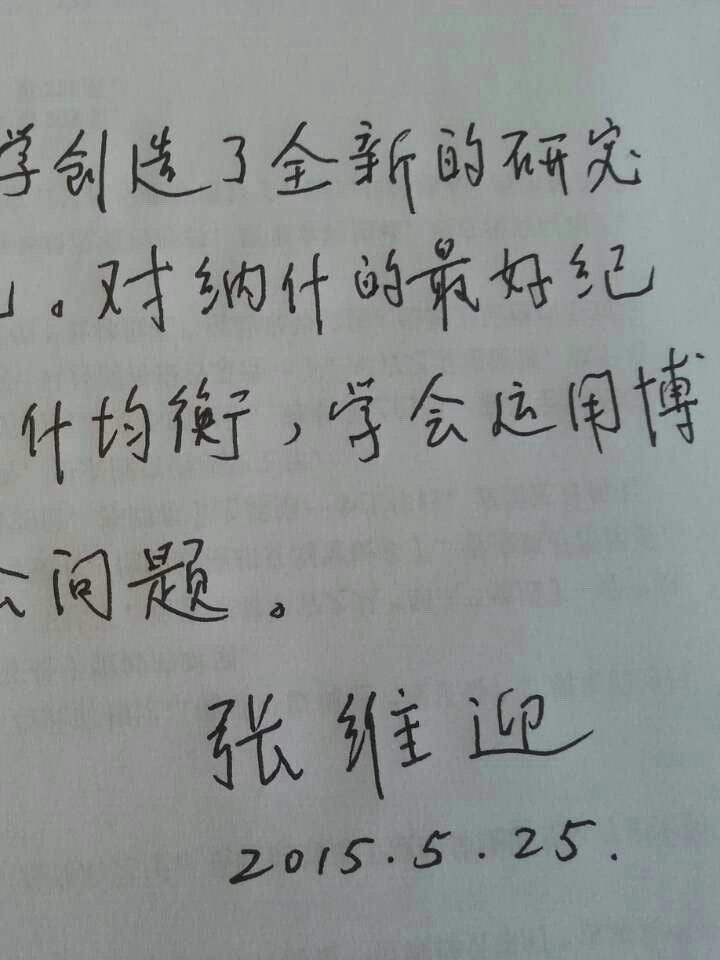 学创造了全新的研究
。对纳什的最好纪
什均衡，学会运用博
问题。
张维迎
2015.5.25.